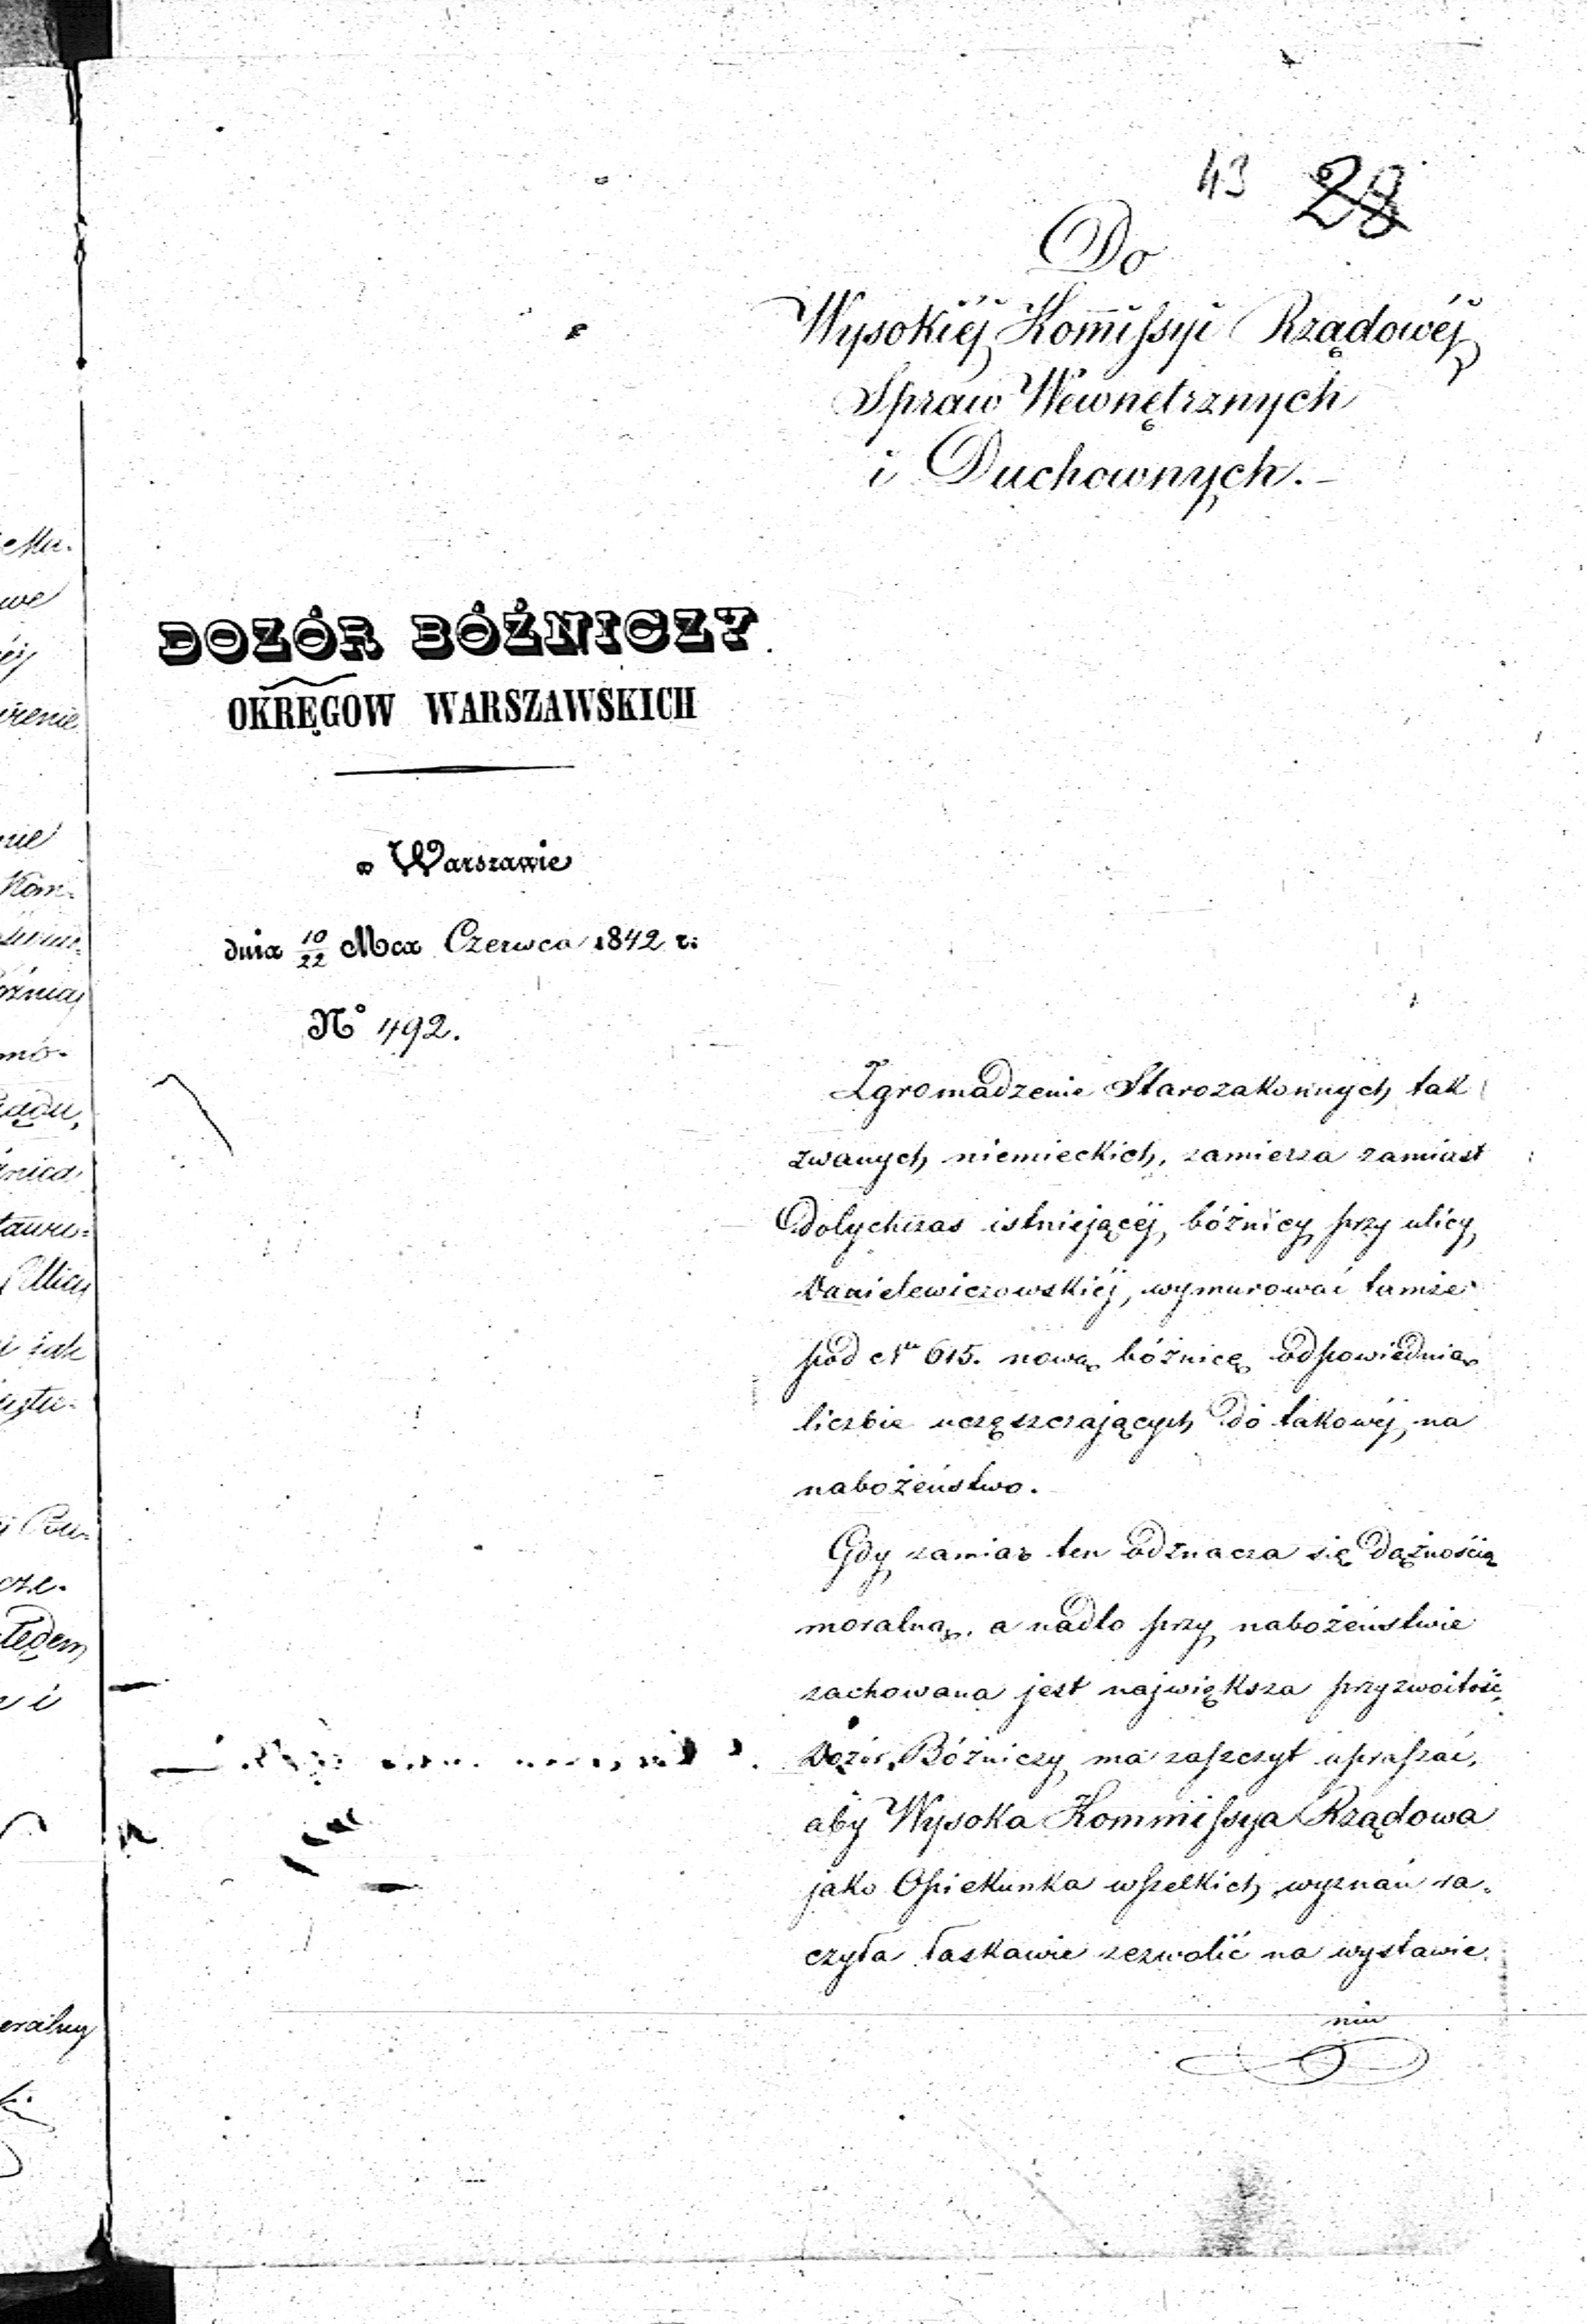 43 28
Do
Wysokiéj Kom̄issyi Rządowéj
Spraw Wewnętrznych
i Duchownych.-
DOZÓR BÓŻNICZY
OKRĘGOW WARSZAWSKICH
w Warszawie
dnia 10/22 Mca Czerwca 1842 r:
No 492.
Zgromadzenie Starozakonnych tak
zwanych niemieckich, zamierza zamiast
dotychczas istniejącéj bóżnicy przy ulicy
Danielewiczowskiéj, wymurować tamże
pod Nr 615. nową bóżnicę odpowiednią
liczbie uczęszczających do takowéj na
nabożeństwo.
Gdy zamiar ten odznacza się dążnością
moralną, a nadto przy nabożeństwie
zachowana jest największa przyzwoitość,
Dozór Bóżniczy ma zaszczyt upraszać,
aby Wysoka Kommissya Rządowa
jako Opiekunka wszelkich wyznań ra-
czyła łaskawie zezwolić na wystawie-
niu